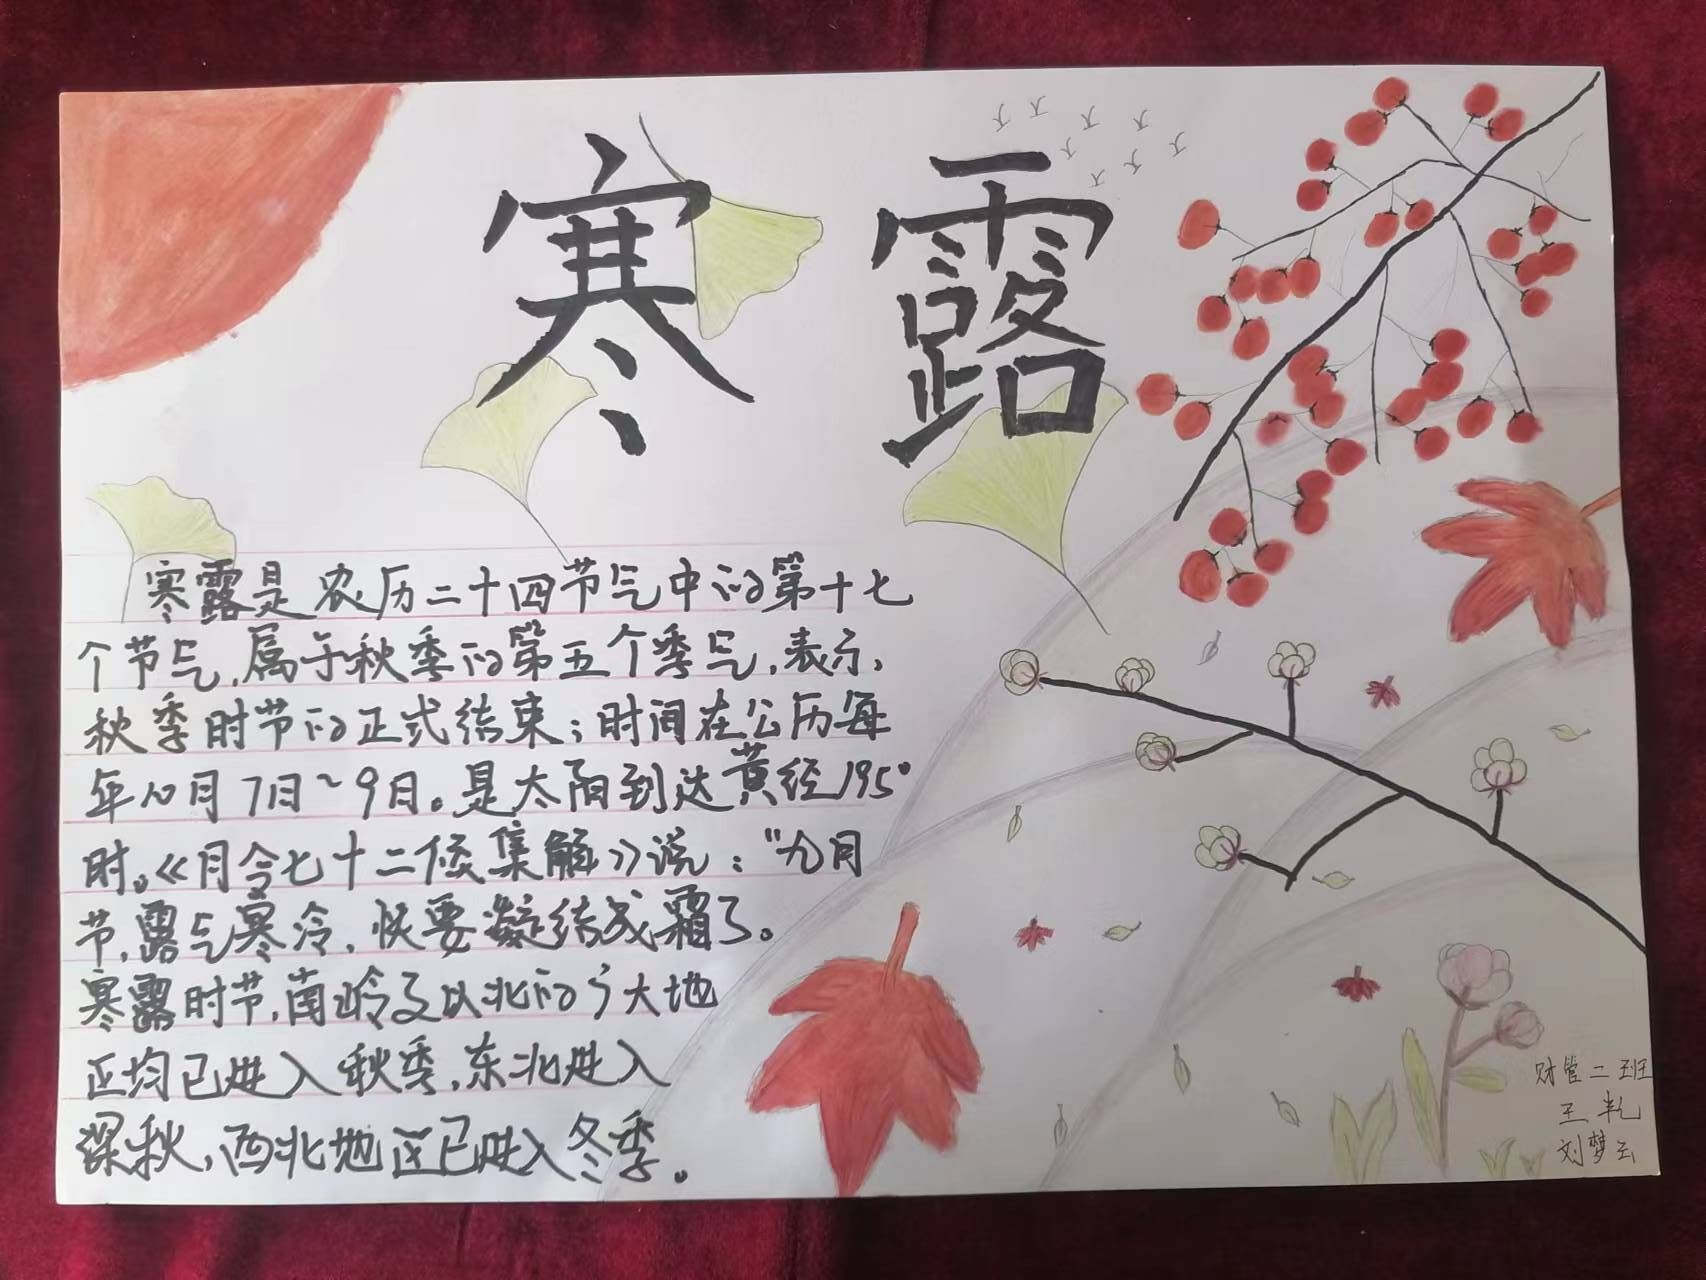 寒露
寒露是农历二十四节气中的第十七
个节气,属于秋季的第五个季气,表示,
秋季时节的正式结束;时间在公历每
年10月7日~9日。是太阳到达黄经195°
时。《月令七十二候集解》说:“九月
节,露气寒冷,快要凝结成霜了。
寒露时节,南岭及以北的广大地
区均已进入秋季,东北进入
深秋,西北地区已进入冬季。
财管二班
刘梦云